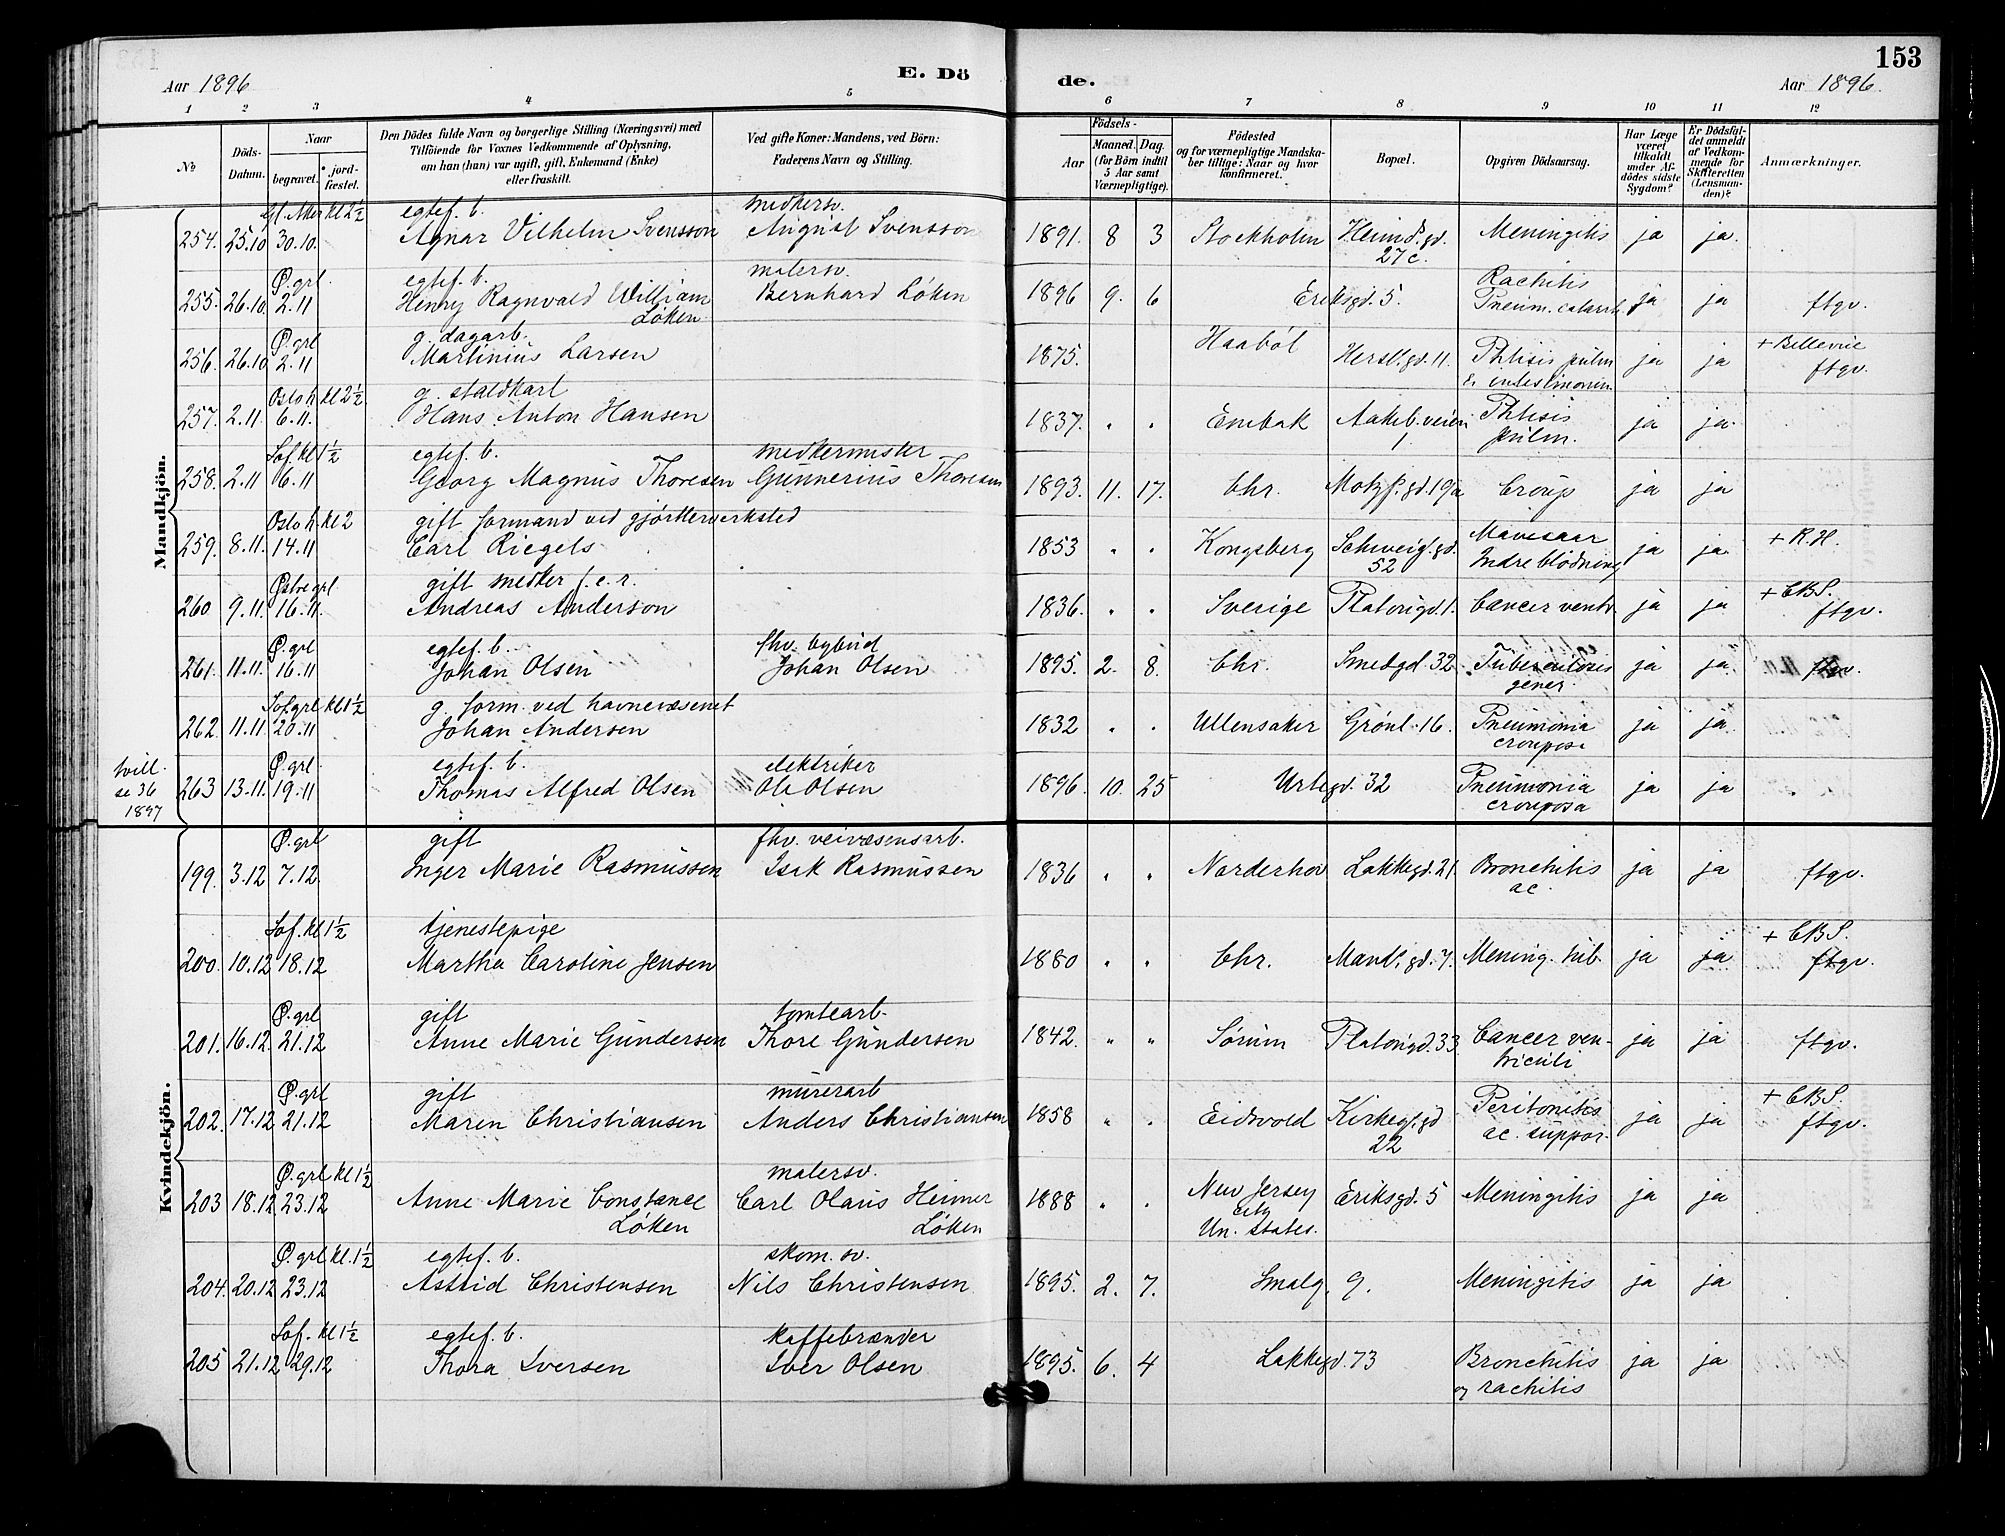 153
Aar 1896
E. Dö de.
Aar 1896.
1 2 3 4 5 6 7 8 9 10 11 12
No
Döds-Datum.
Naar begravet. jord-fæstet.
Den Dödes fulde Navn og borgerlige Stilling (Næringsvei) med Tilföiende for Voxnes Vedkommende af Oplysning, om han (hun) var ugift, gift, Enkemand (Enke) eller fraskilt.
Ved gifte Koner: Mandens, ved Börn: Faderens Navn og Stilling.
Födsels-
Aar
Maaned. Dag. (for Börn indtil 5 Aar samt Værnepligtige).
Födested og for værnepligtige Mandskaber tillige: Naar og hvor konfirmeret.
Bopæl.
Opgiven Dödsaarsag.
Har Læge været tilkaldt under Afdödes sidste Sygdom?
Er Dödsfaldet anmeldt af Vedkommende for Skifteretten (Lensmanden)?
Anmærkninger.
Mandkjön.
Gl. Aker kl 2½ egtef. b. snedkersv.
254. 25.10 30.10. Agnar Vilhelm Svensson August Svensson 1891. 8 3 Stockholm Heimd.gd. 27c. Meningitis ja ja.
Ø.grl egtef. b. malersv.
255. 26.10. 2.11 Henry Ragnvald William Løken Bernhard Løken 1896 9. 6 Eriksgd. 5. Rachitis Pneum. catarrh. ja ja ftgv.
Ø.grl g. dagarb.
256. 26.10 2.11 Martinius Larsen 1875. Haabøl Hersl.gd. 11. Phtisis pulm & intestinorum ja ja + Bellevue ftgv.
Oslo h. kl 2½ g. staldkarl
257. 2.11 6.11. Hans Anton Hansen 1837. " " Enebak Aakeb.veien 1 Phtisis pulm. ja ja.
Sof. kl 1½ egtef. b. snedkermester
258. 2.11 6.11 Georg Magnus Thoresen Gunnerius Thoresen 1893. 11. 17. Chr. Motzf.gd. 19a Croup ja ja
Oslo h. kl 2 gift formand ved gjørtlerverksted
259. 8.11. 14.11 Carl Riegels 1853 " " Kongsberg Schweig.gd. 52 Mavesaar Indre blödning ja ja. + R.H.
Østre grl gift snedker f.e.r.
260 9.11. 16.11. Andreas Anderson 1836. " " Sverige Platousgd. 1. Cancer ventr. ja ja + CBS. ftgv.
Ø. grl egtef. b. fhv. bybud
261. 11.11. 16.11 Johan Olsen Johan Olsen 1895. 2. 8. Chr. Smedgd. 32 Tuberculosis gener. ja ja. ftgv.
Sof. grl kl 1½ g. form. ved havnevæsenet
262. 11.11. 20.11 Johan Andersen 1832 " " Ullensaker Grønl. 16. Pneumonia crouposa ja ja.
Ø. grl. egtef. b. elektriker
263 13.11. 19.11 Thomas Alfred Olsen Ole Olsen 1896. 10. 25 Urtegd. 32 Pneumonia crouposa ja ja
tvill. se 36 1897
Kvindekjön.
Ø. grl gift fhv. veivæsensarb.
199. 3.12 7.12. Inger Marie Rasmussen Isak Rasmussen 1836 " " Norderhov Lakkegd. 21. Bronchitis ac. ja ja ftgv.
Sof. kl 1½ tjenestepige
200. 10.12 18.12 Martha Caroline Jensen 1880 " " Chr. Mandl.gd. 7. Mening. tub. ja ja + CBS. ftgv.
Ø. grl gift tomtearb.
201. 16.12. 21.12 Anne Marie Gundersen Thore Gundersen 1842. " " Sørum Platousgd. 33. Cancer ventriculi ja ja ftgv.
Ø. grl gift murerarb
202. 17.12 21.12 Maren Christiansen Anders Christiansen 1858 " " Eidsvold Kirkeg.gd 22 Peritonitis ac. suppur. ja ja + CBS. ftgv.
Ø. grl kl. 1½ malersv.
203 18.12 23.12 Anne Marie Constance Løken Carl Olaus Heimer Løken 1888 " " New Jersey city Un. States. Eriksgd. 5 Meningitis ja ja
Ø. grl kl. 1½ egtef. b. skom. sv.
204. 20.12 23.12 Astrid Christensen Nils Christensen 1895. 2. 7. Smalg. 9. Meningitis ja ja
Sof. kl 1½ egtef. b. kaffebrænder
205 21.12 29.12 Thora Iversen Iver Olsen 1895. 6. 4 Lakkegd. 73 Bronchitis og rachitis ja ja